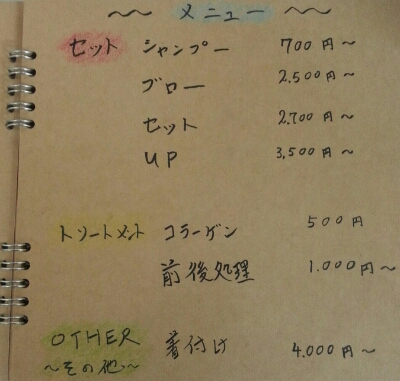 ～ メニュー ～
セット シャンプー 700円～
ブロー 2,500円～
セット 2,700円～
UP 3,500円～
トリートメント コラーゲン 500円
前後処理 1.000円～
OTHER 着付け 4.000円～
～その他～